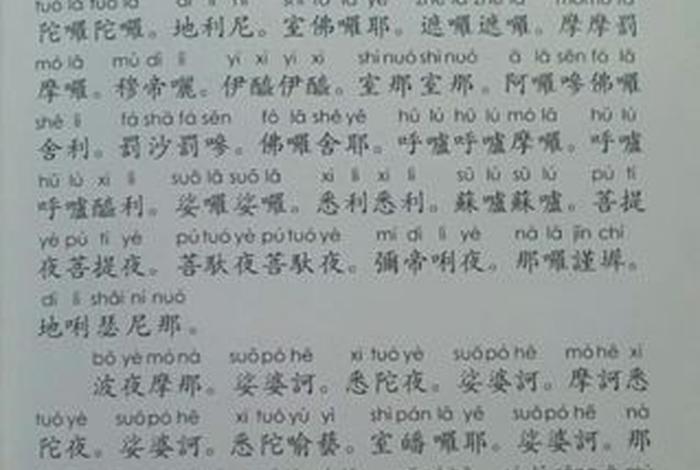 陀囉陀囉。地利尼。室佛囉耶。遮囉遮囉。摩摩罰
mó lā mù dì lì yī xī yī xī shì nuó shì nuó ā lā sēn fó lā
摩囉。穆帝曬。伊醯伊醯。室那室那。阿囉嘇佛囉
shě lì fá shā fá sēn fó lā shě yé hū lú hū lú mó lā hū lú
舍利。罰沙罰嘇。佛囉舍耶。呼嚧呼嚧摩囉。呼嚧
hū lú xī lì suō lā suō lā xī lì xī lì sū lú sū lú pú tí
呼嚧醯利。娑囉娑囉。悉利悉利。蘇嚧蘇嚧。菩提
yè pú tí yè pú tuó yè pú tuó yè mí dì lì yè nà lā jǐn chí
夜菩提夜。菩馱夜菩馱夜。彌帝唎夜。那囉謹墀。
dì lì shāi ní nuó
地唎瑟尼那。
bō yè mó nà suō pó hē xī tuó yè suō pó hē mó hē xī
波夜摩那。娑婆訶。悉陀夜。娑婆訶。摩訶悉
tuó yè suō pó hē xī tuó yù yì shì pán lā yē suō pó hē nà
陀夜。娑婆訶。悉陀喻藝。室皤囉耶。娑婆訶。那